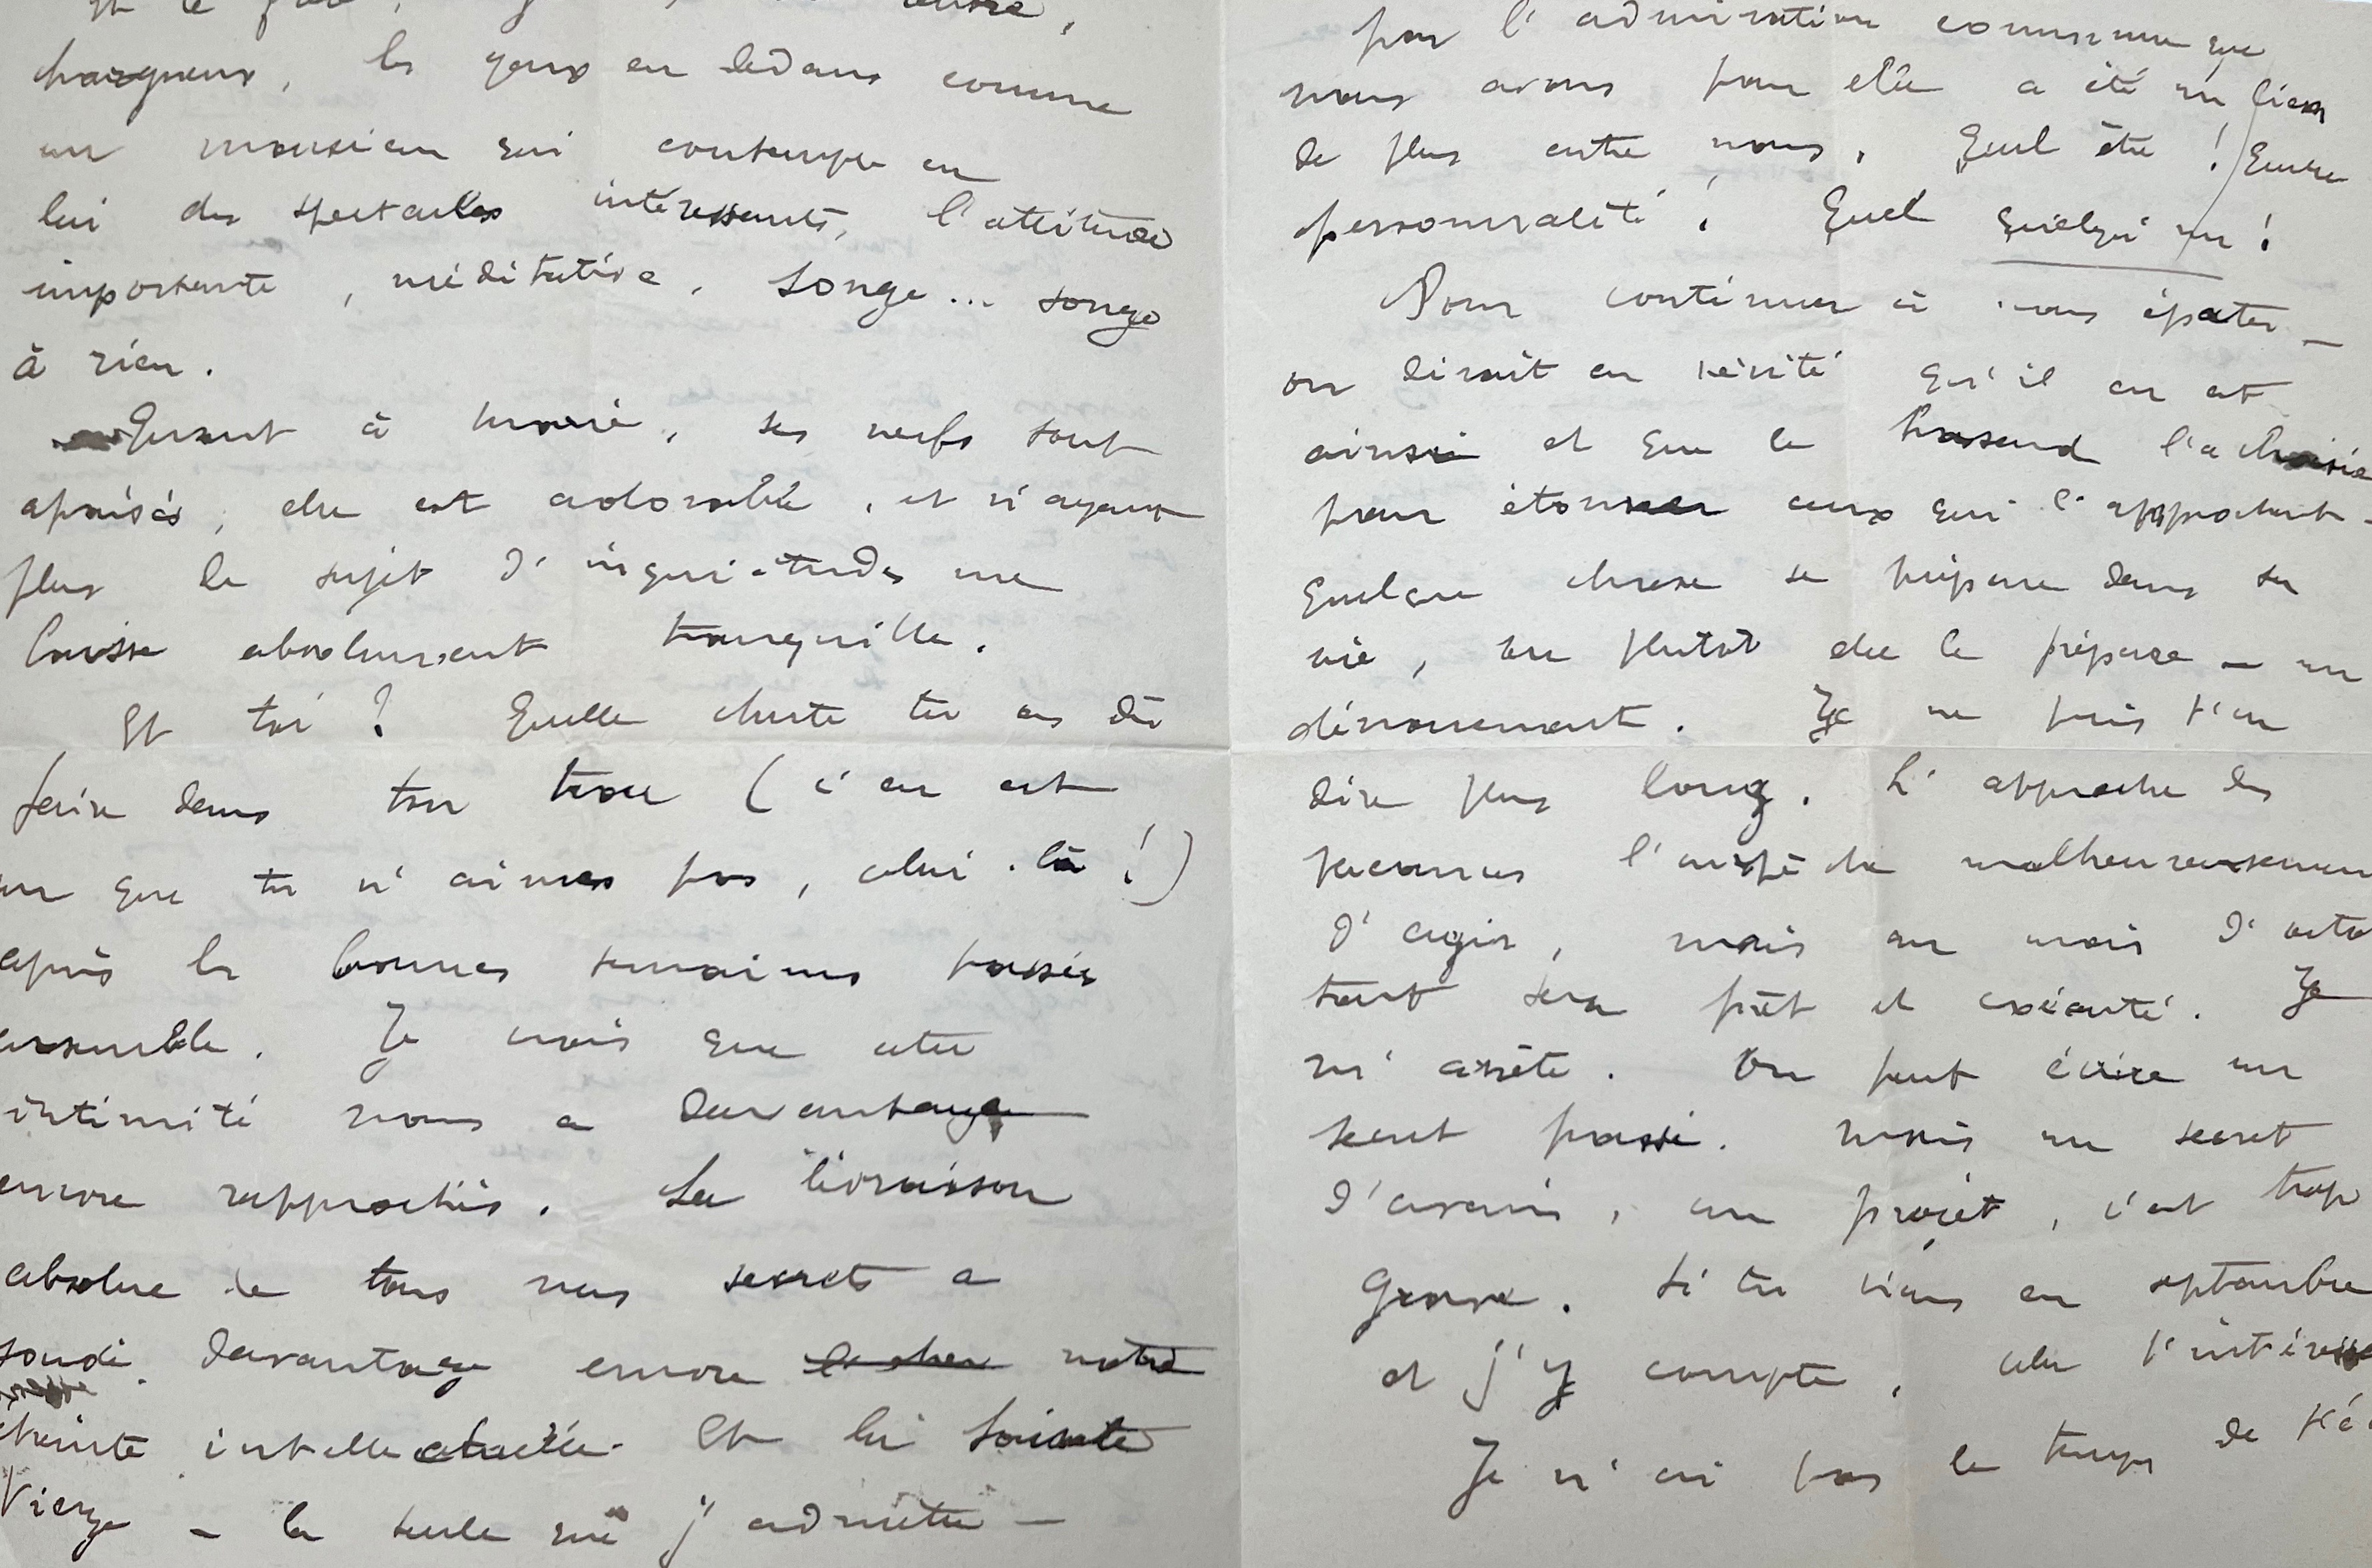 et le
hargneux, les yeux en dedans comme
un monsieur qui contemple en
lui des spectacles intéressants, l'attitude
importante, méditative, songe... songe
à rien.
Quant à maria, ses nerfs sont
apaisés, elle est adorable, et n'ayant
plus de sujet d'inquiétudes me
laisse absolument tranquille.
Et toi ? Quelle chute tu as dû
faire dans ton trou (c'en est
un que tu n'aimes pas, celui-là !)
après les bonnes semaines passées
ensemble. Je crois que cette
intimité nous a davantage
encore rapprochés. La livraison
absolue de tous nos secrets a
soudé davantage encore notre
étreinte intellectuelle. Et la Sainte
Vierge – la seule que j'admette –
par l'admiration commune que
nous avons pour elle a été un lien
de plus entre nous. Quel être ! Quelle
personnalité ! Quel quelqu'un !
Pour continuer à nous épater –
on dirait en vérité qu'il en est
ainsi et que le hasard l'a choisie
pour étonner ceux qui l'approchent –
quelque chose se prépare dans sa
vie, ou plutôt elle le prépare – un
dénouement. Je ne puis t'en
dire plus long. L'approche des
vacances l'empêche malheureusemen
d'agir, mais au mois d'octo
tout sera prêt et exécuté. Je
m'arrête. On peut écrire un
secret passé. mais un secret
d'avenir, un projet, c'est trop
grave. Si tu viens en septembre
et j'y compte, cela t'intéresse
Je n'ai pas le temps de